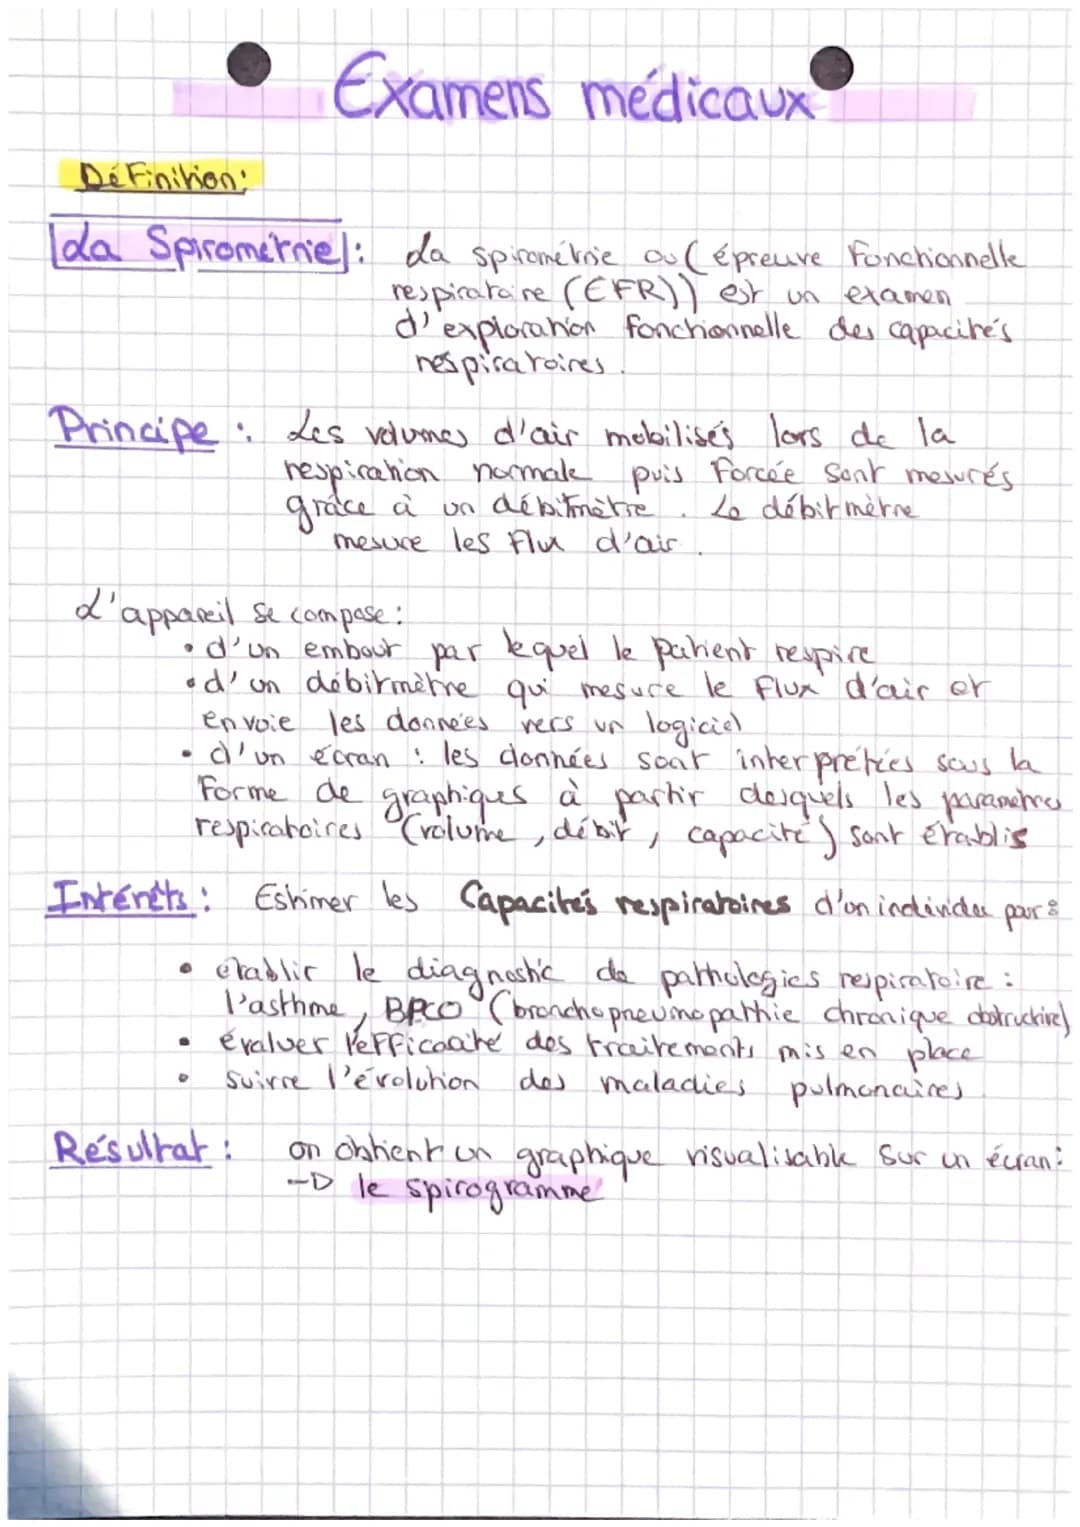 Examens médicaux
Définition:
La Spirométrie : La spirométrie ou (épreuve fonctionnelle
respiratoire (EFR)) est un examen
d'exploration fonctionnelle des capacités
respiratoires.
Principe : Les volumes d'air mobilisés lors de la
respiration normale puis forcée sont mesurés
grâce à un débitmètre. Le débitmètre
mesure les flux d'air.
L'appareil se compose :
• d'un embout par lequel le patient respire
• d'un débitmètre qui mesure le flux d'air et
envoie les données vers un logiciel
• d'un écran : les données sont interprétées sous la
forme de graphiques à partir desquels les paramètres
respiratoires (volume, débit, capacité) sont établis
Intérêts : Estimer les Capacités respiratoires d'un individu par :
• établir le diagnostic de pathologies respiratoire :
l'asthme, BPCO (bronchopneumopathie chronique obstructive)
• évaluer l'efficacité des traitements mis en place
• suivre l'évolution des maladies pulmonaires.
Résultat : on obtient un graphique visualisable sur un écran :
→ le spirogramme